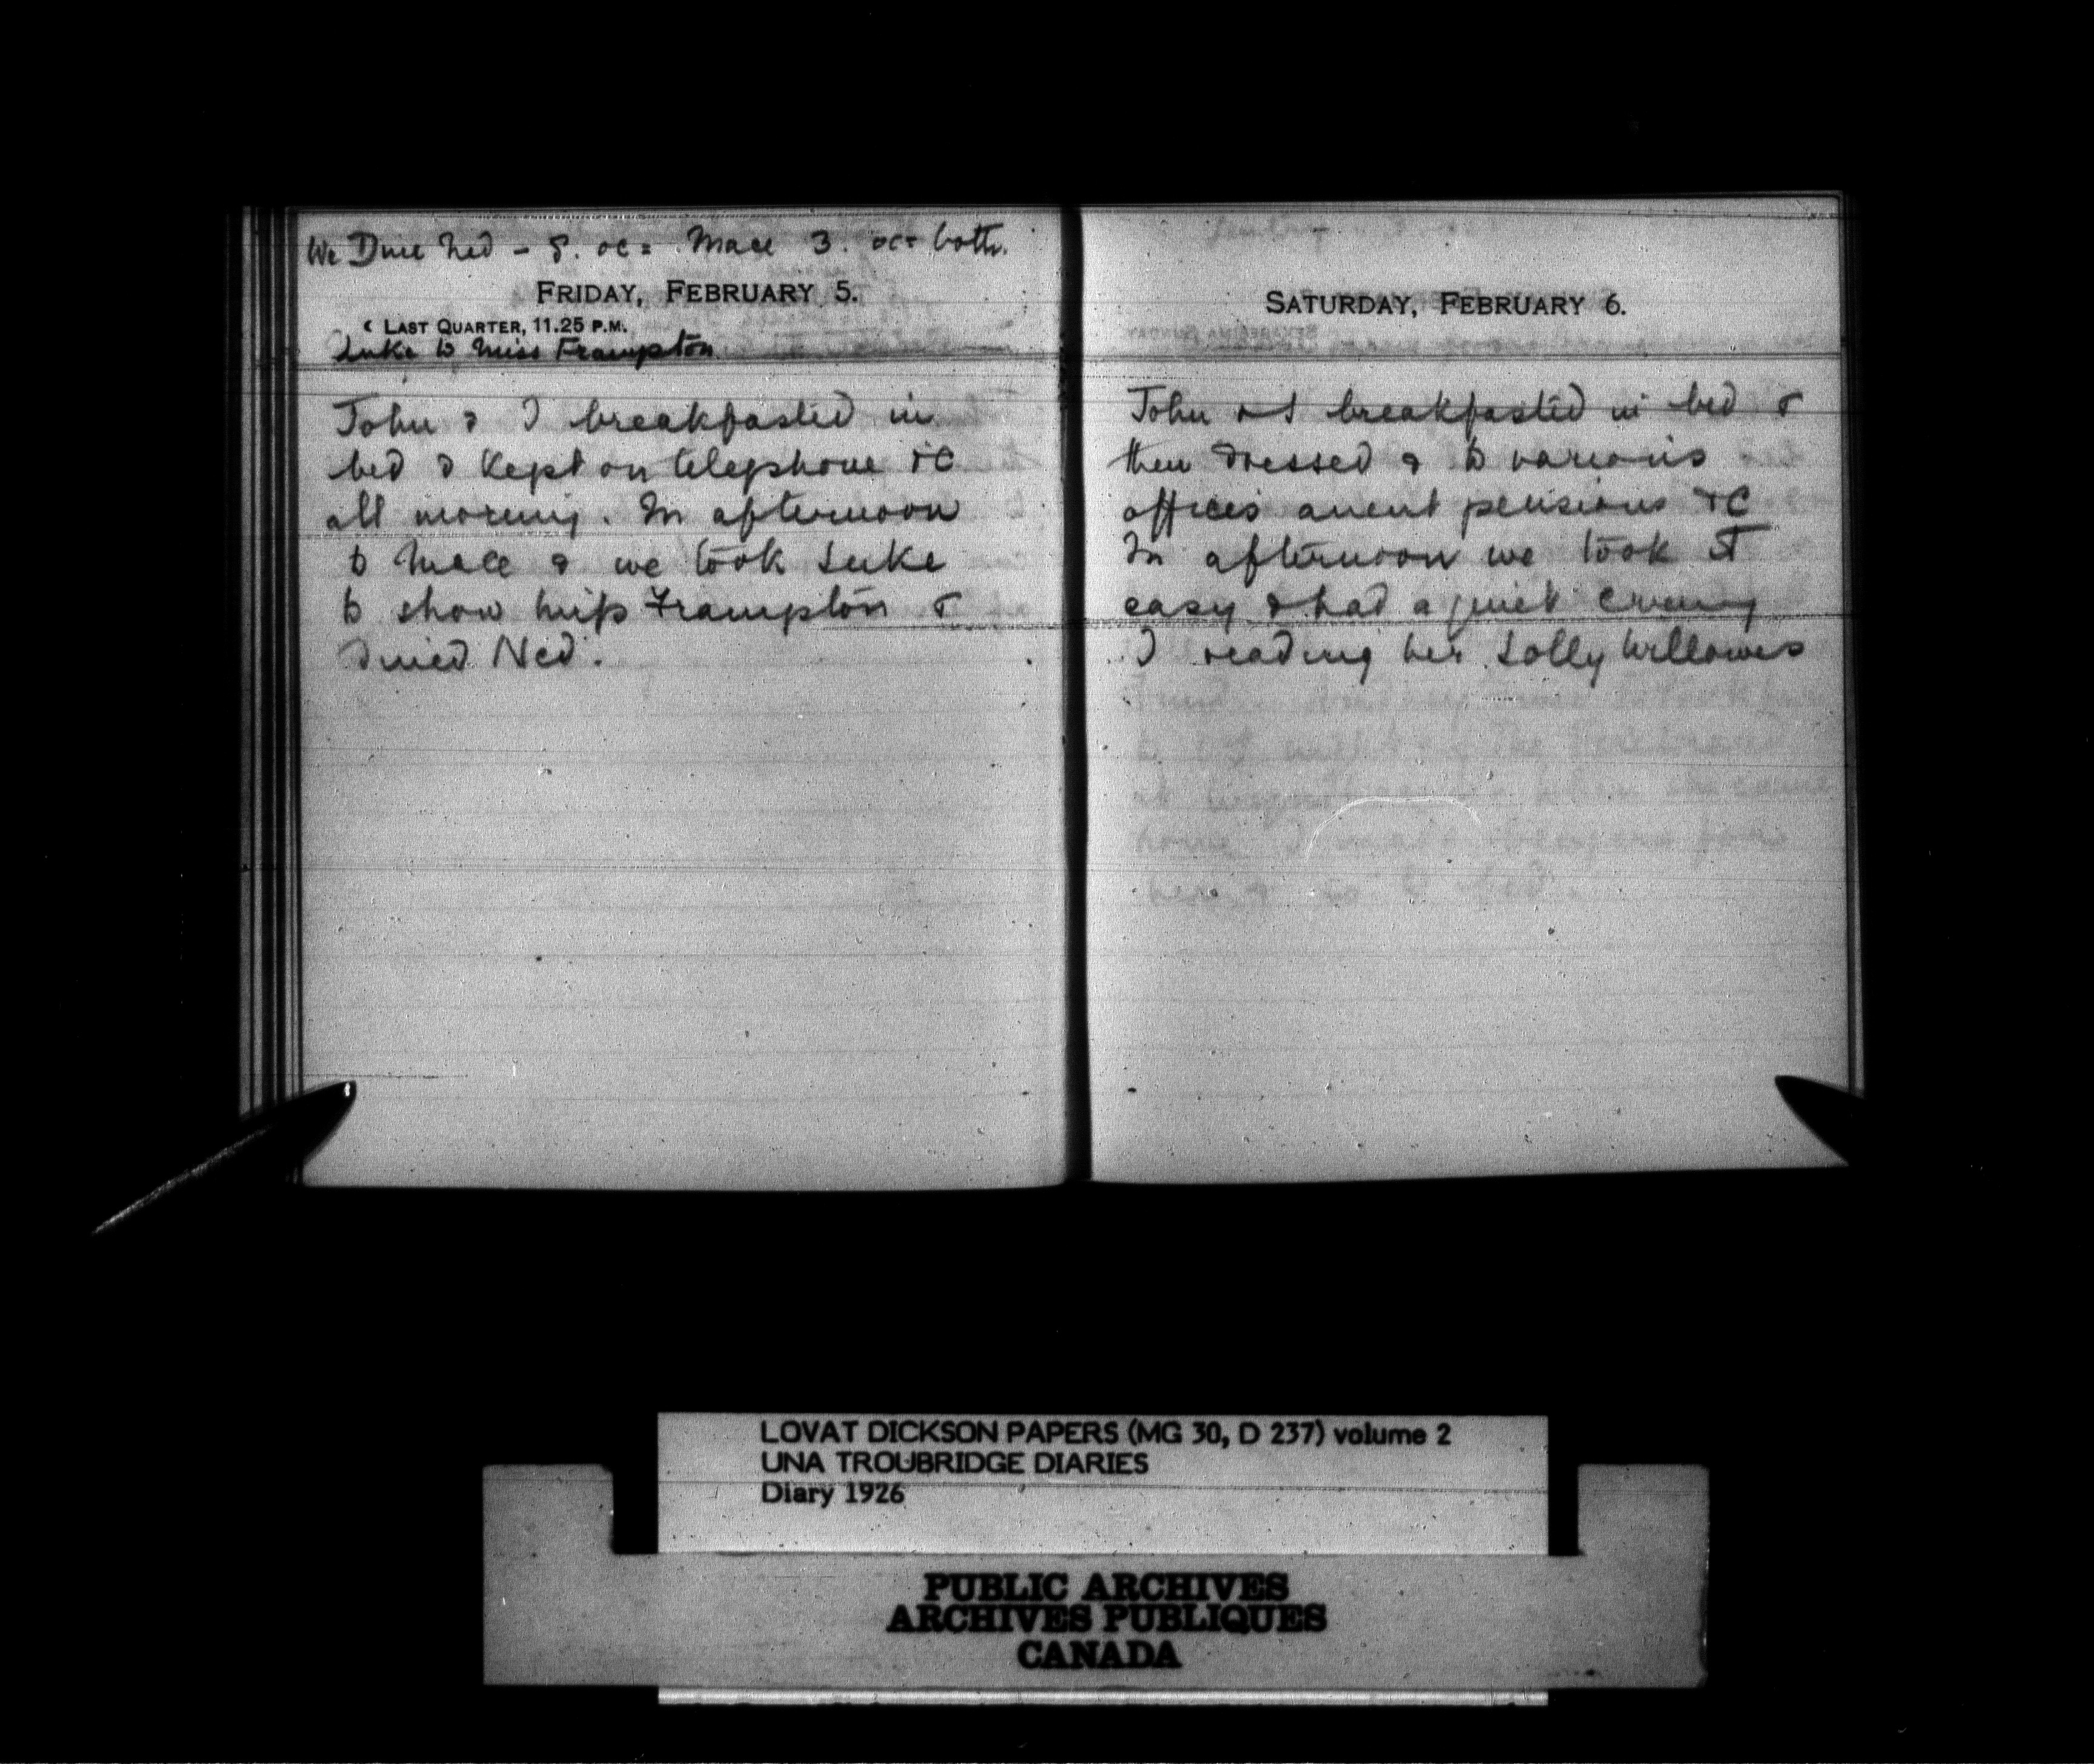 We Dine Ned - 8. oc= Mace 3. oc= both.
FRIDAY, FEBRUARY 5.
☾ LAST QUARTER, 11.25 P.M.
Luke to Miss Frampton
John & I breakfasted in
bed & kept on telephone &C
all morning. In afternoon
to Mace & we took Luke
to show Miss Frampton &
dined Ned.
SATURDAY, FEBRUARY 6.
John & I breakfasted in bed &
then dressed & to various
offices anent pensions &C
In afternoon we took it
easy & had a quiet evening
I reading her Lolly Willowes
LOVAT DICKSON PAPERS (MG 30, D 237) volume 2
UNA TROUBRIDGE DIARIES
Diary 1926
PUBLIC ARCHIVES
ARCHIVES PUBLIQUES
CANADA